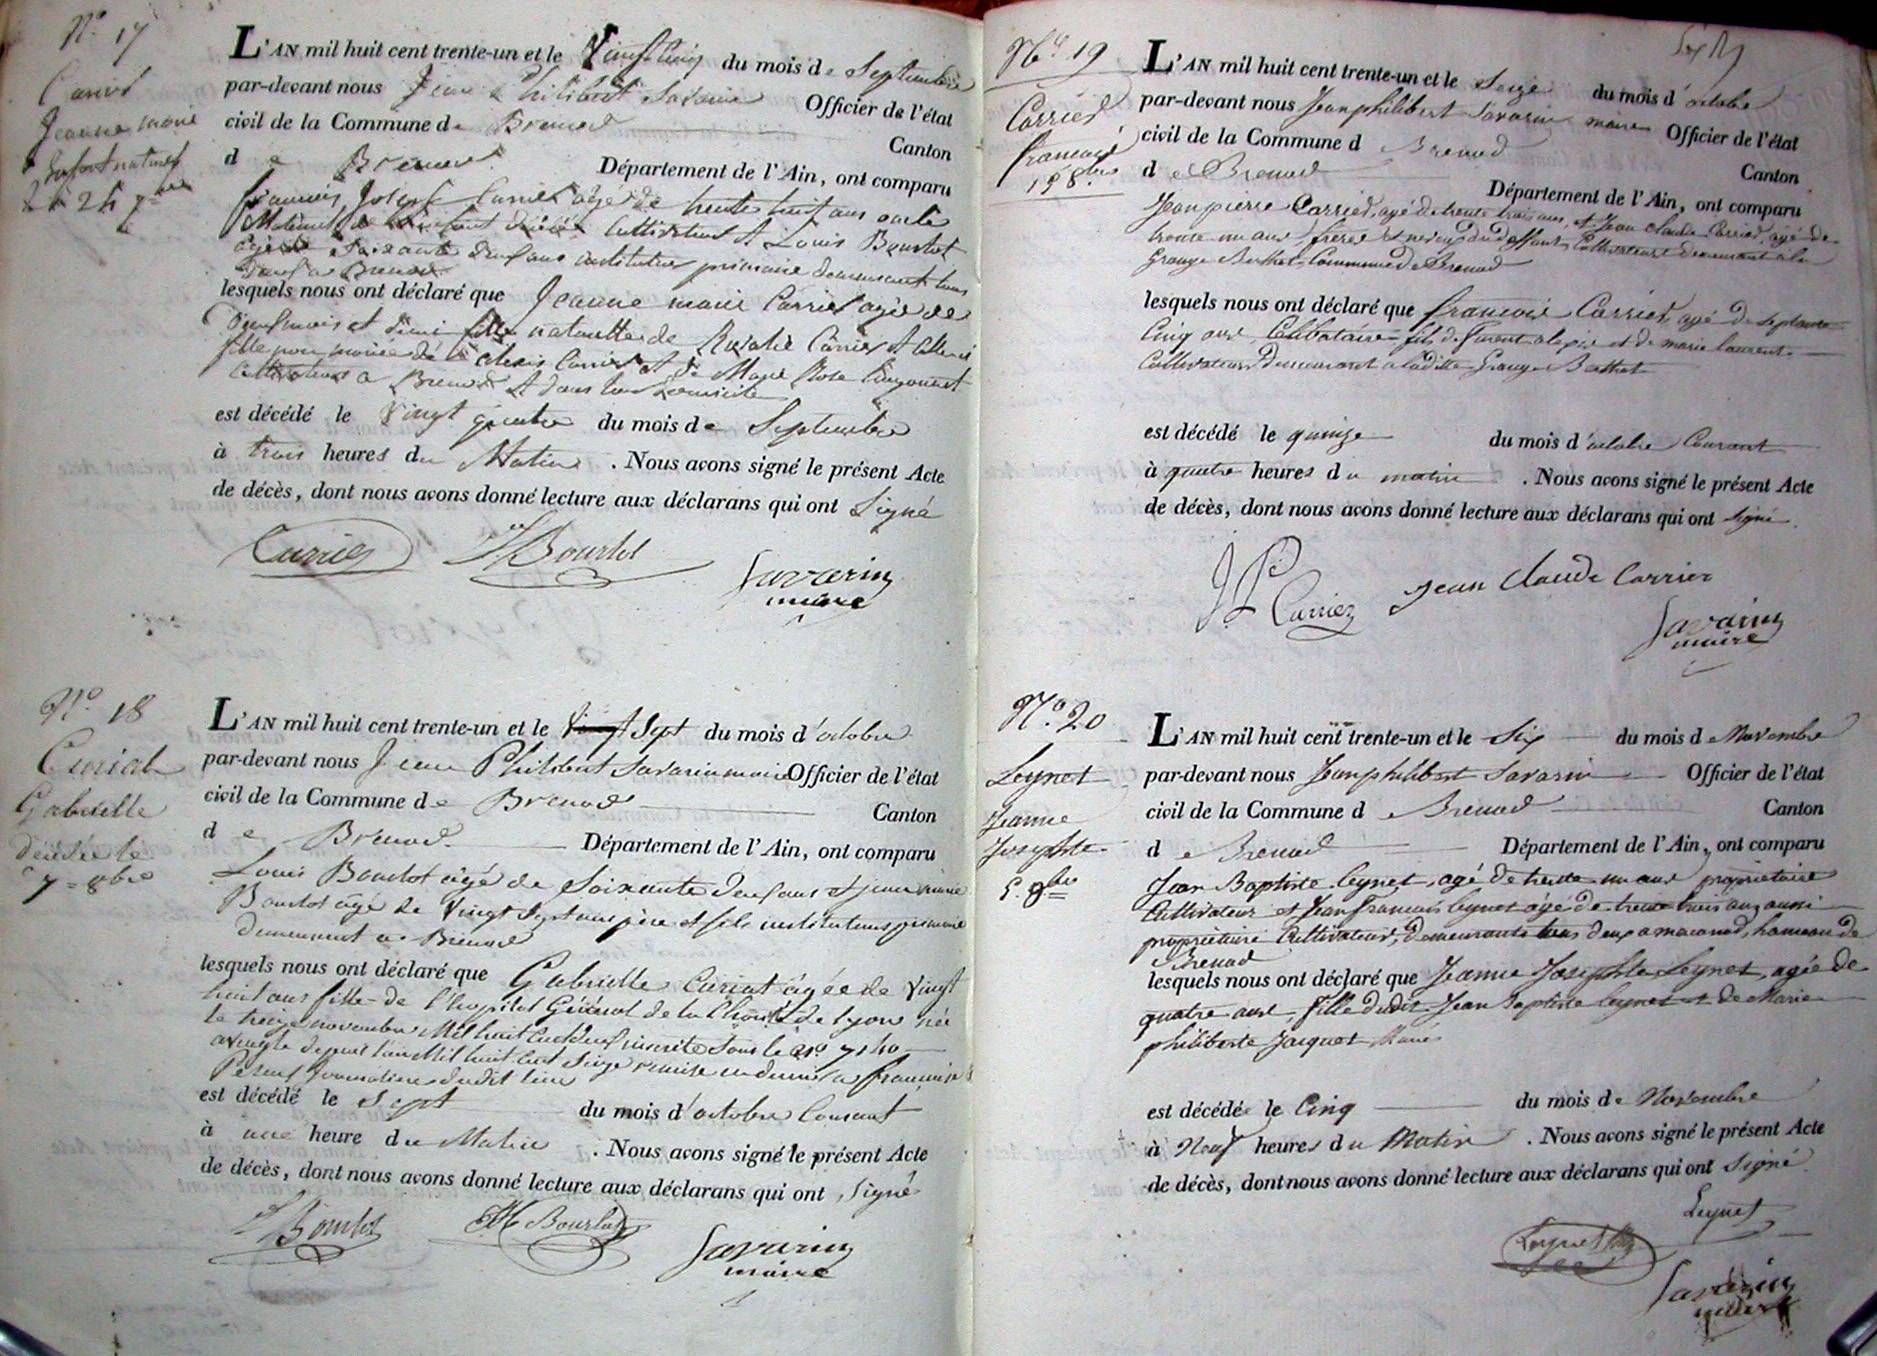 N.° 17
Carrier
Jeanne marie
Enfant naturel
24 7bre
L'AN mil huit cent trente-un et le Vingt Cinq du mois de Septembre
par-devant nous Jean Philibert Savarin Officier de l'état
civil de la Commune de Brenod Canton
de Brenod Département de l'Ain, ont comparu
françois Joseph Carrier agé de trente huit ans oncle
Maternel de l'enfant décédé Cultivateur et Louis Bourlot
agé de Soixante deux ans instituteur primaire demeurant tous
deux a Brenod
lesquels nous ont déclaré que Jeanne marie Carrier agée de
mois et demi fille naturelle de Rosalie Carrier
fille non mariée de alexis Carrier et de Marie Rose
Cultivateurs a Brenod et dans leur domicile
est décédé le Vingt quatre du mois de Septembre
à trois heures du Matin . Nous avons signé le présent Acte
de décès, dont nous avons donné lecture aux déclarans qui ont Signé
Carrier Bourlot
Savarin
maire
N.° 18
Curiat
Gabrielle
décédée le
7 = 8bre
L'AN mil huit cent trente-un et le Vingt Sept du mois d'octobre
par-devant nous Jean Philibert Savarin maire Officier de l'état
civil de la Commune de Brenod Canton
de Brenod Département de l'Ain, ont comparu
Louis Bourlot agé de Soixante deux ans et
Bourlot agé de Vingt Sept ans père et fils instituteurs primaire
demeurant a Brenod
lesquels nous ont déclaré que Gabrielle Curiat agée de Vingt
huit ans fille de l'hospital Général de la Charité de Lyon née
le treize novembre Mil huit Cent deux inscrite Sous le N° 7140
aveugle depuis l'an Mil huit Cent Seize remise a françoise
dudit lieu
est décédé le Sept du mois d'octobre Courant
à une heure du Matin . Nous avons signé le présent Acte
de décès, dont nous avons donné lecture aux déclarans qui ont Signé
Bourlot Bourlot
Savarin
maire
N.° 19
Carrier
françois
15 8bre
L'AN mil huit cent trente-un et le Seize du mois d'octobre
par-devant nous Jean philibert Savarin maire Officier de l'état
civil de la Commune d Brenod Canton
de Brenod Département de l'Ain, ont comparu
Jean pierre Carrier, agé de trente trois ans, et Jean Claude Carrier, agé de
trente un ans frères et neveux du deffunt, Cultivateurs demeurant a la
Grange Berthet Commune de Brenod
lesquels nous ont déclaré que françois Carrier, agé de septante
Cinq ans, Célibataire fils de alexis et de marie laurent
Cultivateurs demeurant a ladite Grange Berthet
est décédé le quinze du mois d'octobre Courant
à quatre heures du matin . Nous avons signé le présent Acte
de décès, dont nous avons donné lecture aux déclarans qui ont signé.
J P Carrier Jean Claude Carrier
Savarin
maire
N.° 20
Leynet
Jeanne
Josephte
5. 9bre
L'AN mil huit cent trente-un et le Six du mois de Novembre
par-devant nous Jean philibert Savarin Officier de l'état
civil de la Commune de Brenod Canton
de Brenod Département de l'Ain, ont comparu
Jean Baptiste Leynet, agé de trente un ans propriétaire
Cultivateur et Jean françois leynet agé de trente trois ans aussi
propriétaire Cultivateur, demeurants tous deux a macconod, hameau de
Brenod
lesquels nous ont déclaré que Jeanne Josephte Leynet, agée de
quatre ans, fille dudit Jean Baptiste leynet et de Marie
philiberte Jacquet Mariés
est décédée le Cinq du mois de Novembre
à Neuf heures du Matin . Nous avons signé le présent Acte
de décès, dont nous avons donné lecture aux déclarans qui ont Signé.
Leynet
Leynet
Savarin
maire